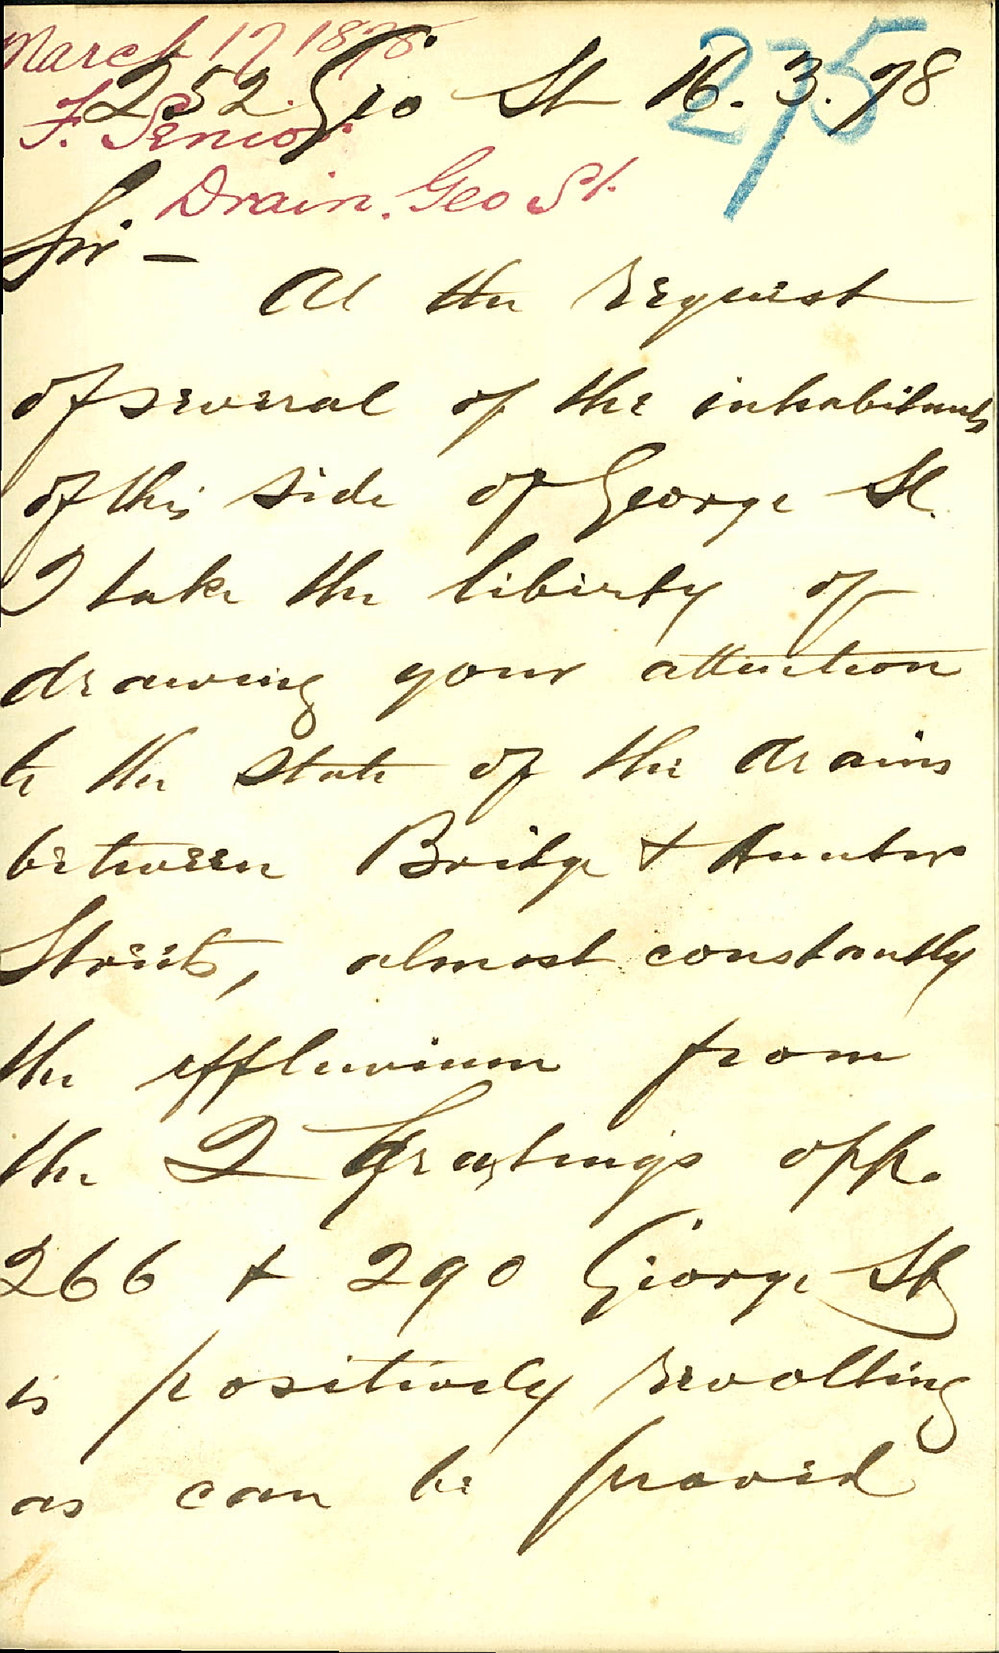 March 17 1878
275
252 Geo St 16.3.78
F. Senior
Drain. Geo St.
Sir -
At the request
of several of the inhabitants
of this side of George St.
I take the liberty of
drawing your attention
to the state of the drains
between Bridge & Hunter
Streets, almost constantly
the effluvium from
the 2 Gratings opp.
266 & 290 George St
is positively revolting
as can be proved